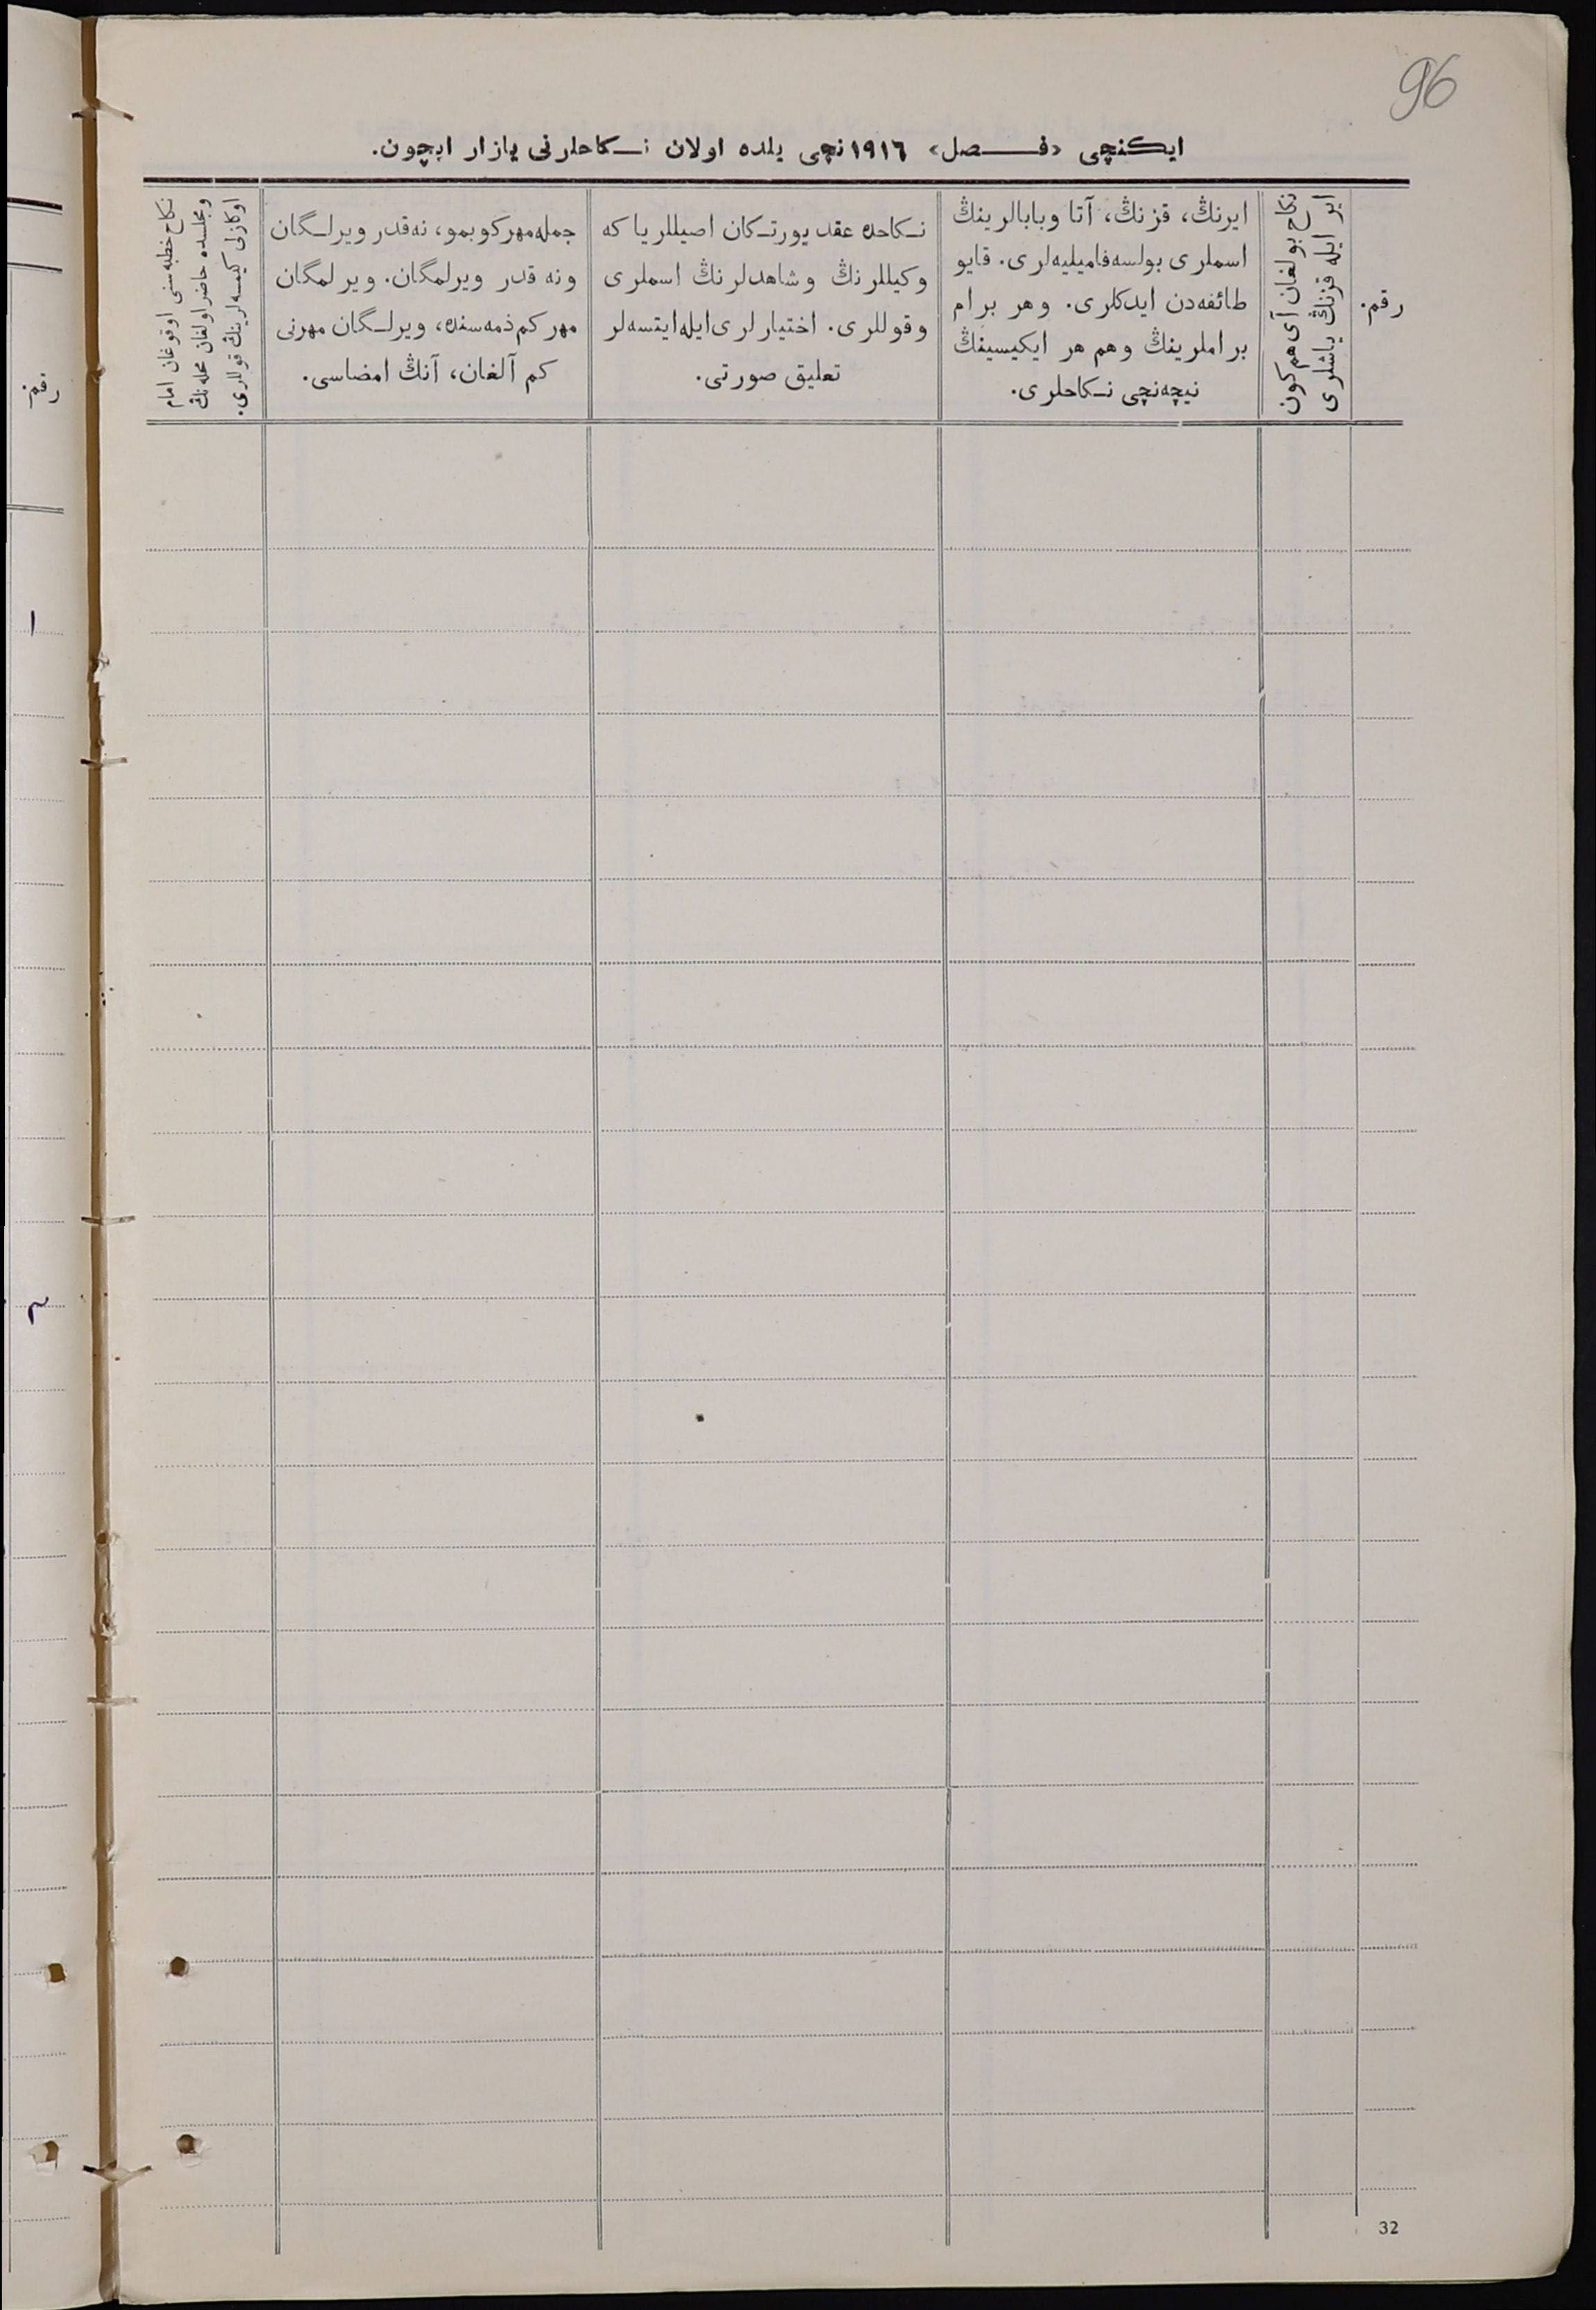 96
ایکنچی «فـصل» ١٩١٦ نچی یلده اولان نـکاحلرنی یازار ایچون.
رقم.
نکاح بولغان آی هم کون
ایر ایله قزنڭ یاشلری
ایرنڭ، قزنڭ، آتا وبابالرینڭ
اسملری بولسه فامیلیه‌لری. قایو
طائفه‌دن ایدکلری. وهر برام
براملرینڭ وهم هر ایکیسینڭ
نیچه‌نچی نـکاحلری.
نـکاحده عقد یورتـکان اصیللریا که
وکیللرنڭ وشاهدلرنڭ اسملری
وقوللری. اختیارلری ایله ایتسه‌لر
تعلیق صورتی.
جمله مهرکوبمو، نه‌قدر ویرلـگان
ونه قدر ویرلمگان. ویرلمگان
مهر کم ذمه‌سنده، ویرلـگان مهرنی
کم آلغان، آنڭ امضاسی.
نکاح خطبه‌سنی اوقوغان امام
ومجلسده حاضر اولغان محله‌نڭ
اوکازلی کیمسه‌لرینڭ قوللری.
رقم
١
٢
32